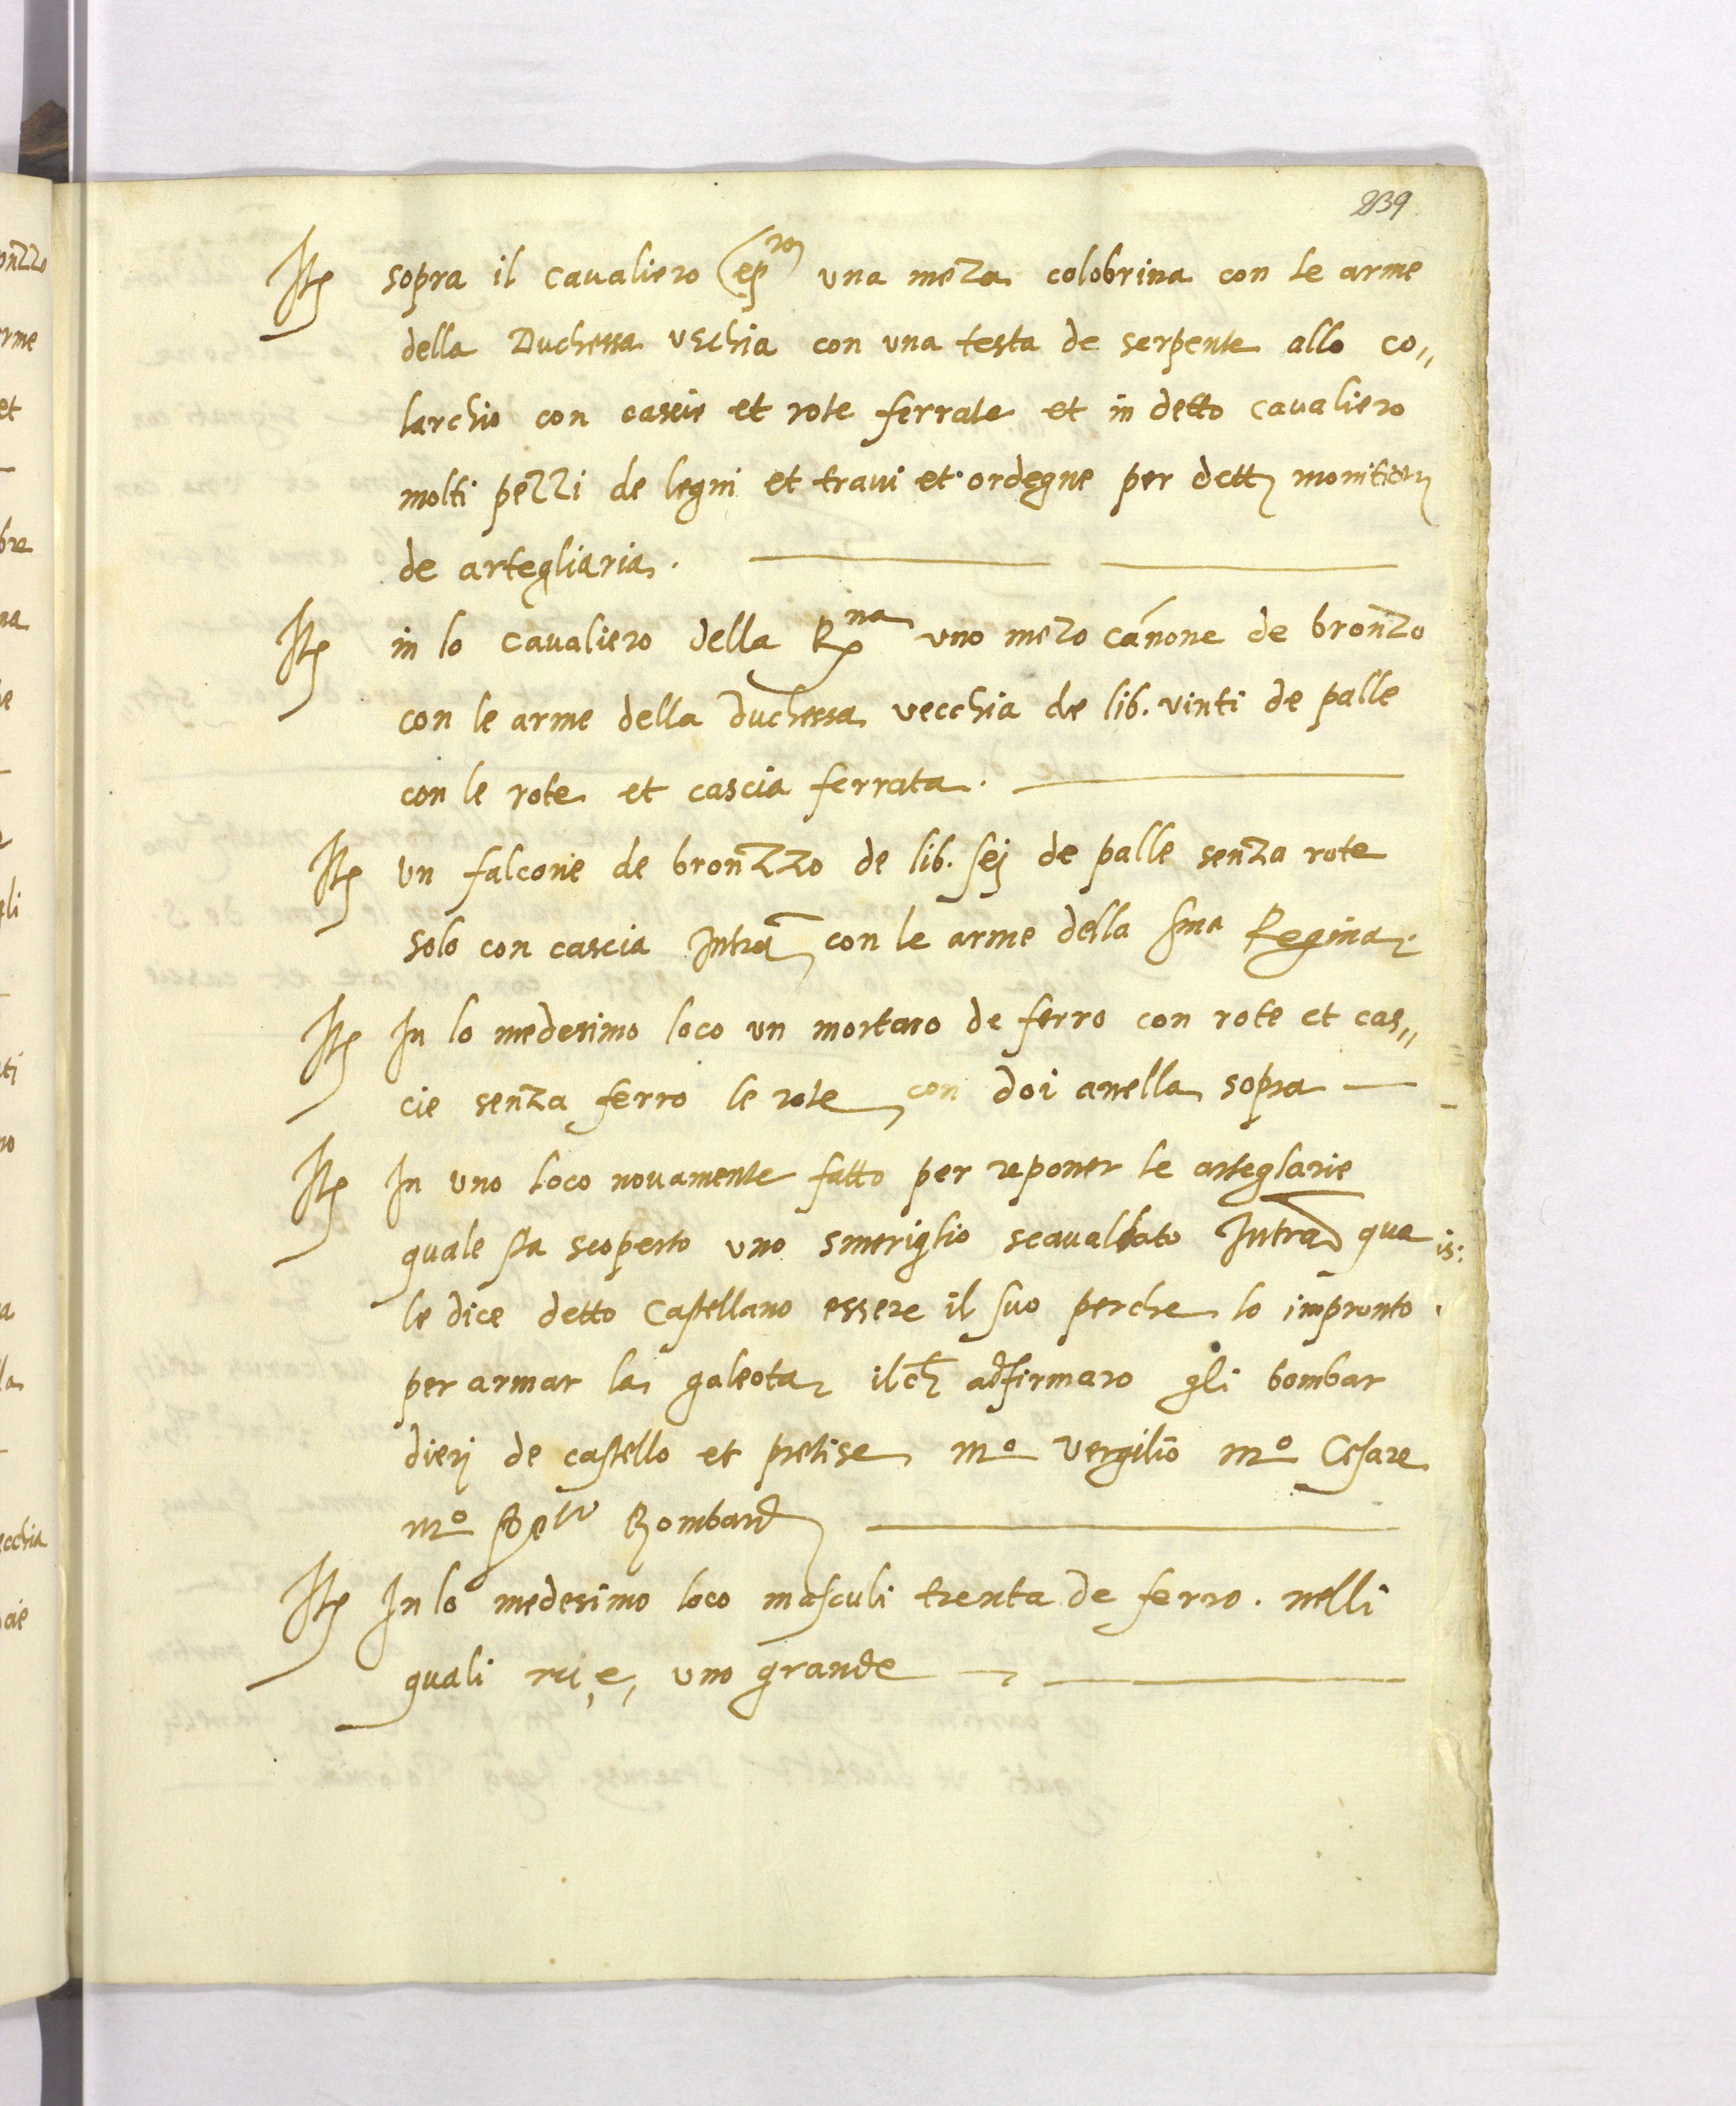 239
Itē sopra il cavaliero una meza colobrina con le arme
della Duchessa vechia con una testa de serpente allo co„
larchio con cascie et rote ferrate et in detto cavaliero
molti pezzi de legni et travi et ordegne per dett monition
de artegliaria.
Itē in lo cavaliero della R^na uno mezo canone de bronzo
con le arme della Duchessa vecchia de lib. vinti de palle
con le rote et cascia ferrata.
Itē Un falcone de bronzzo de lib. sej de palle senza rote
solo con cascia Intra con le arme della s^ma Regina.
Itē In lo medesimo loco un mortaro de ferro con rote et cas„
cie senza ferro le rote con doi anella sopra
Itē In uno loco novamente fatto per reponer le arteglarie
quale sta scoperto uno smeriglio scavalcato Intra qua
le dice detto Castellano essere il suo perche lo impronto
per armar la galeota il ch adfirmaro gli bombar
dierj de castello et pretise m^o Vergilio m^o Cesare
m^o Bombard
Itē In lo medesimo loco masculi trenta de ferro. nelli
quali nci e, uno grande